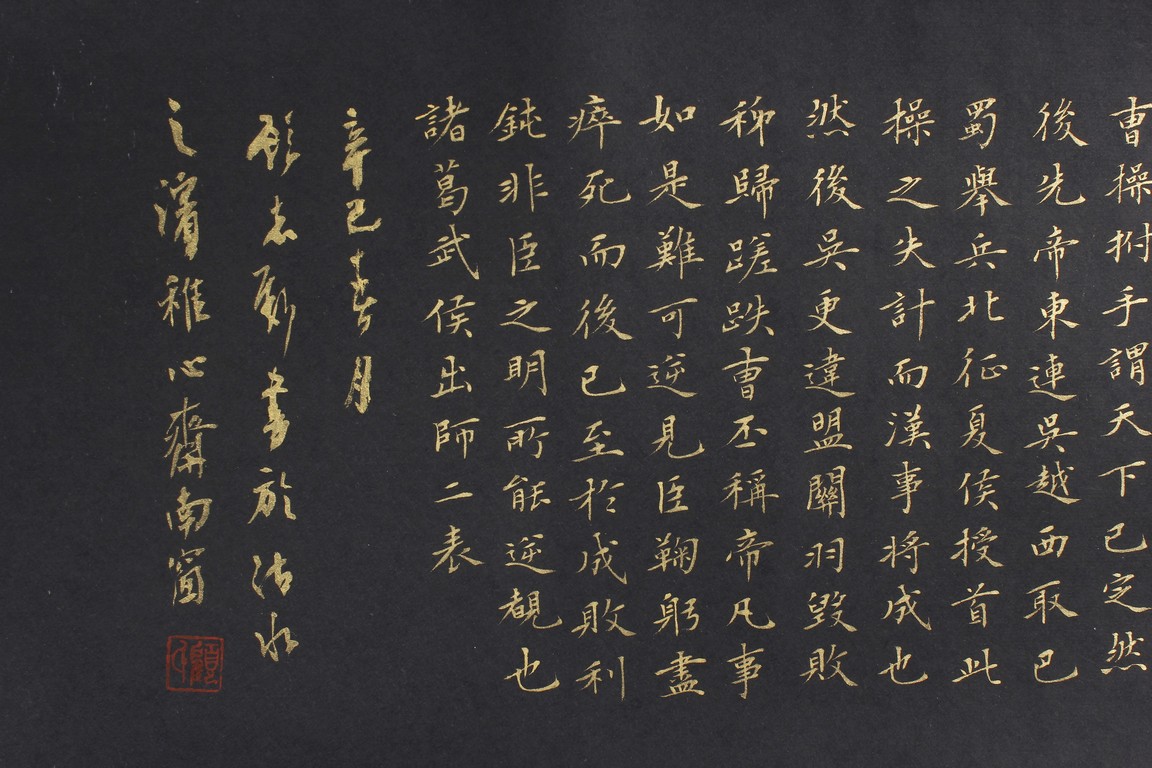 曹操拊手謂天下已定然
後先帝東連吳越西取巴
蜀舉兵北征夏侯授首此
操之失計而漢事將成也
然後吳更違盟關羽毀敗
秭歸蹉跌曹丕稱帝凡事
如是難可逆見臣鞠躬盡
瘁死而後已至於成敗利
鈍非臣之明所能逆覩也
諸葛武侯出師二表
辛巳春月
顧志新書於沽水
之濱稚心齋南窗